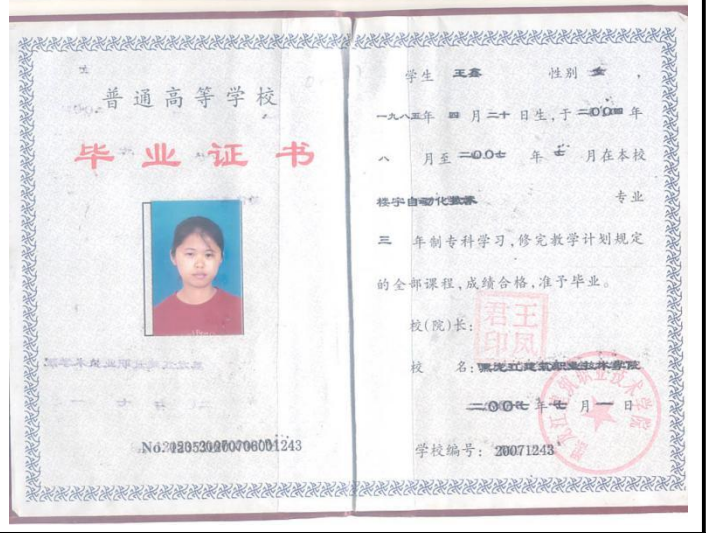 普通高等学校
毕业证书
学生 王鑫 性别 女 ,
一九八五年 四 月二十 日生,于二〇〇四 年
八 月至二〇〇七 年 七 月在本校
楼宇自动化技术 专业
三 年制专科学习,修完教学计划规定
的全部课程,成绩合格,准予毕业。
校(院)长:
王凤君印
校 名:黑龙江建筑职业技术学院
二〇〇七年七月一日
学校编号: 20071243